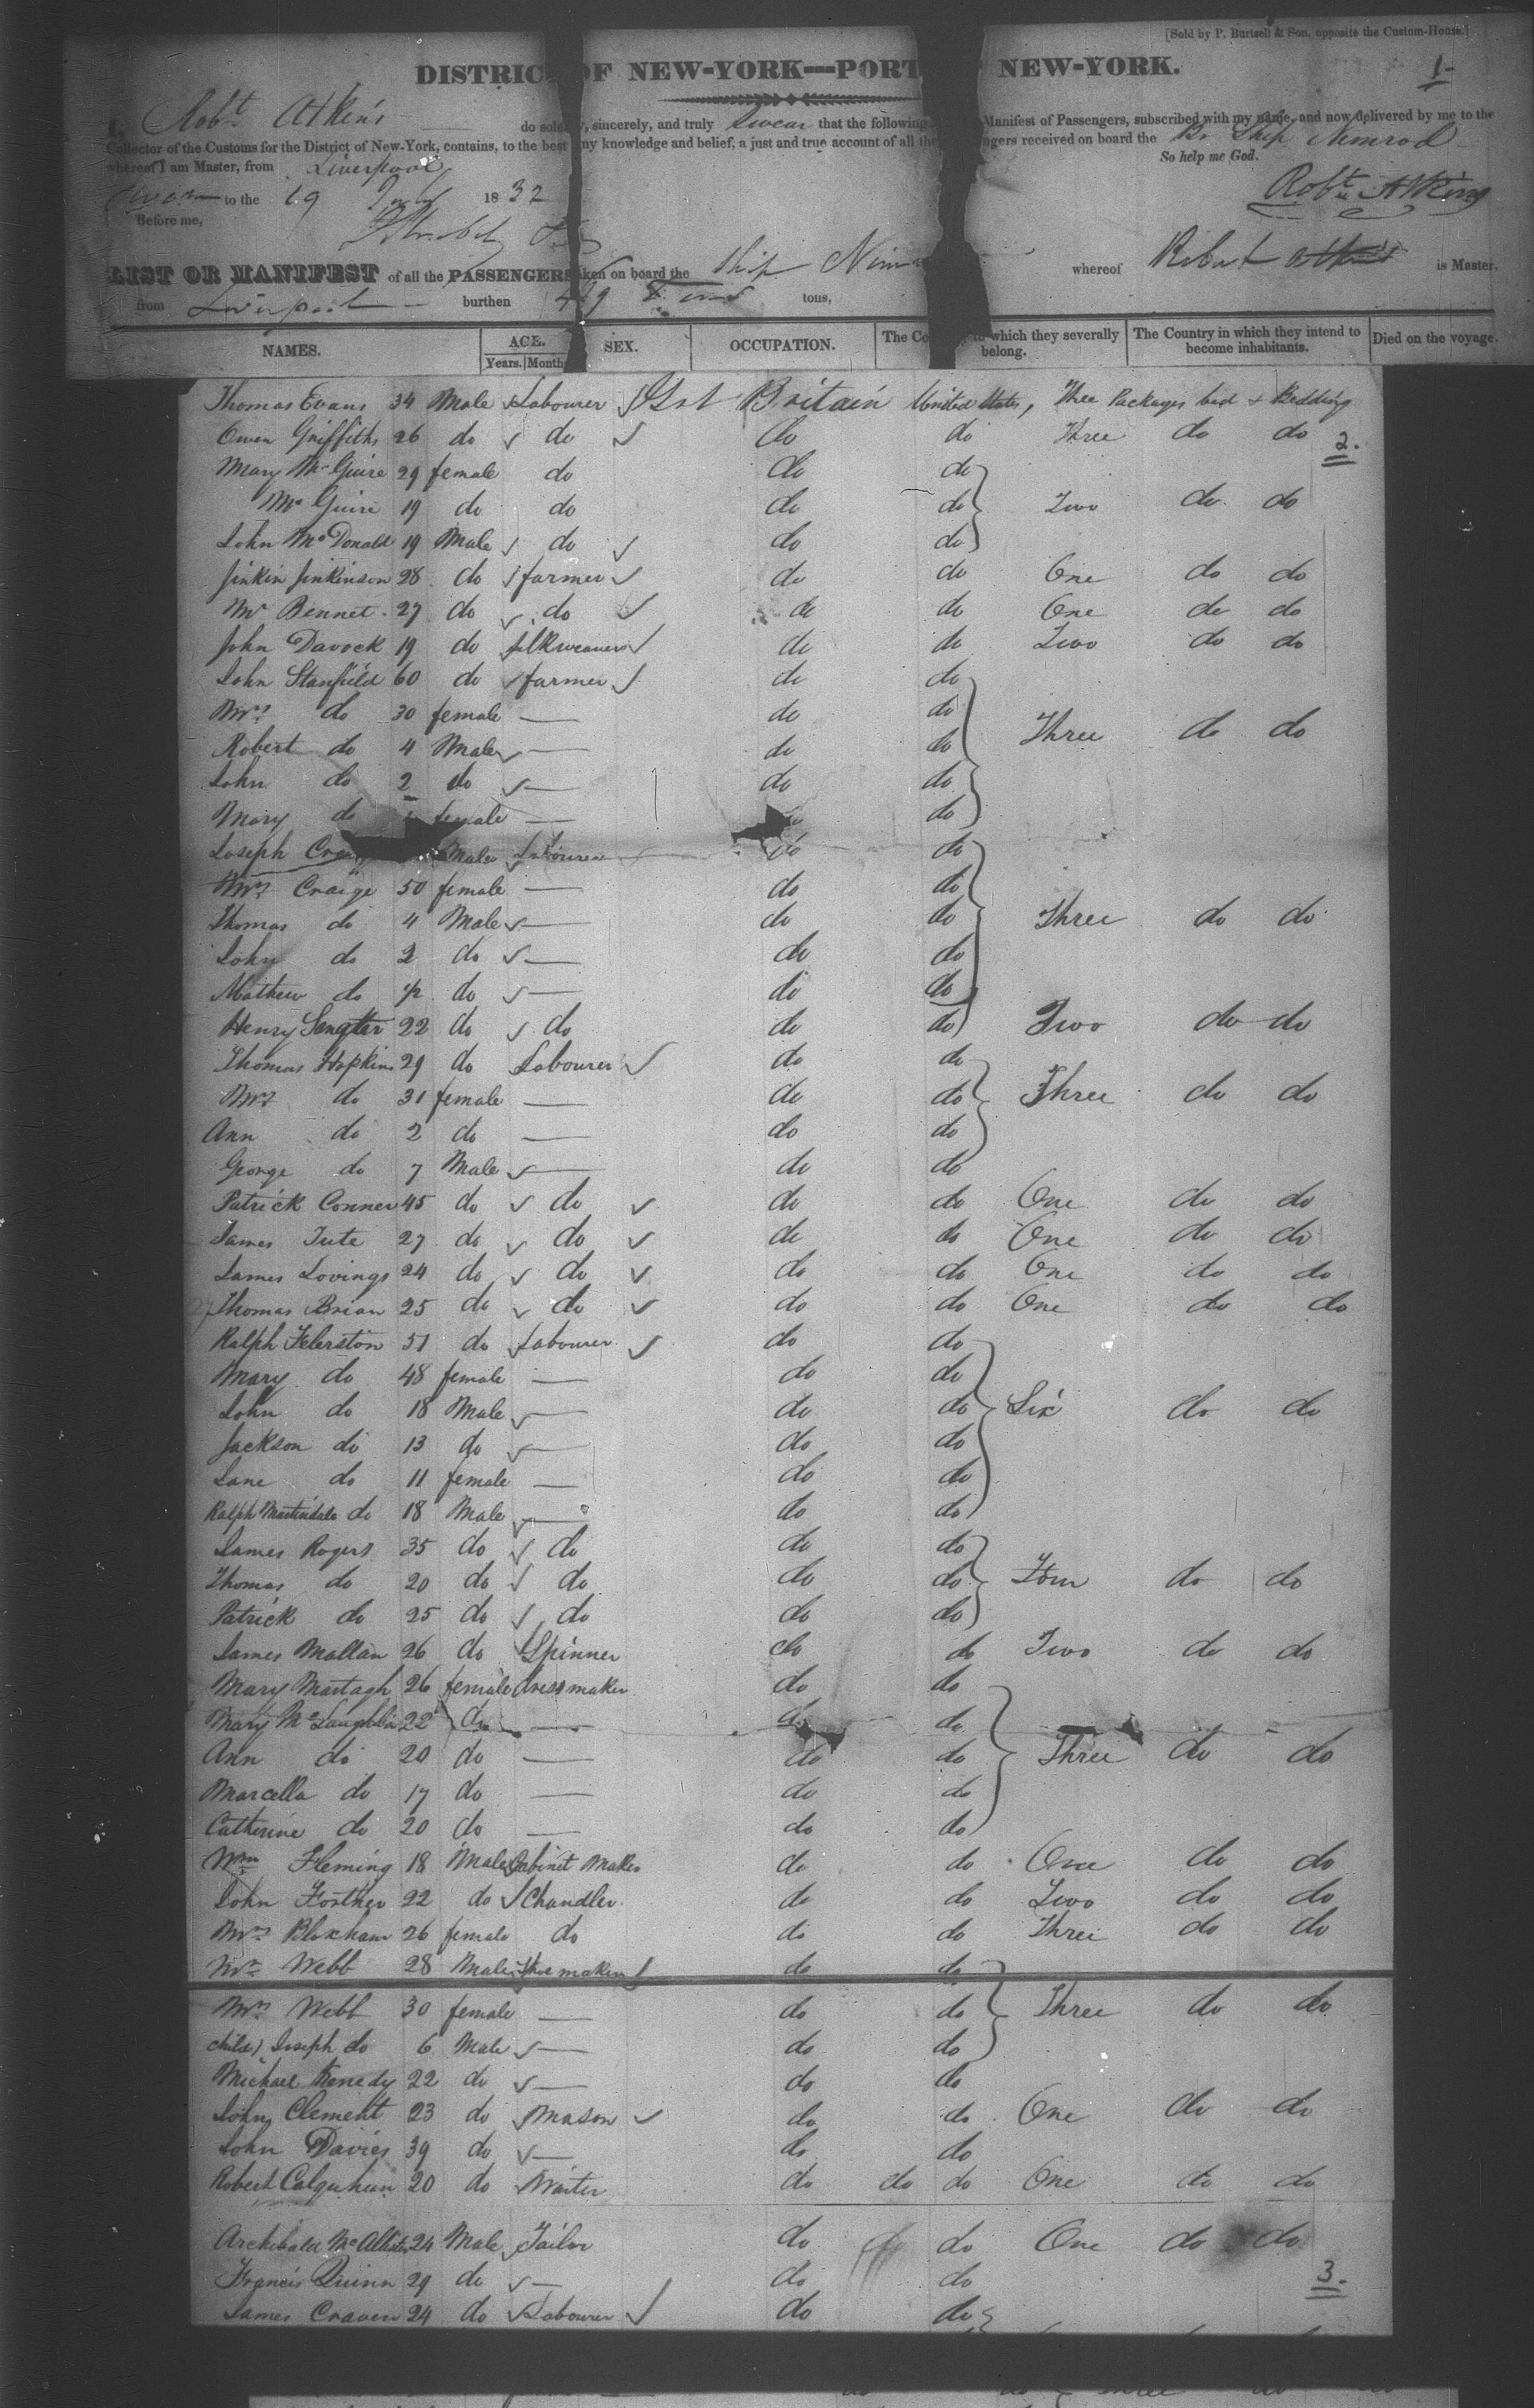 [Sold by P. Burtsell & Son, opposite the Custom-House.]
DISTRIC OF NEW-YORK---PORT NEW-YORK.
1
I, Robt Atkins do sole y, sincerely, and truly Swear that the following Manifest of Passengers, subscribed with my name, and now delivered by me to the
Collector of the Customs for the District of New-York, contains, to the best my knowledge and belief, a just and true account of all the ngers received on board the Br Ship Nimrod
whereof I am Master, from Liverpool
So help me God.
to the 19 July 1832
Robt Atkins
Before me,
LIST OR MANIFEST of all the PASSENGERS taken on board the Ship Nim whereof Robert Atkins is Master.
from Liverpool burthen tons,
NAMES. AGE. SEX. OCCUPATION. The Co to which they severally belong. The Country in which they intend to become inhabitants. Died on the voyage.
Years. Month
Thomas Evans 34 Male Labourer Grt Britain United States, Three Packages bed & Bedding
Owen Griffiths 26 do do do do Three do do
2.
Mary McGuire 29 female do do do
McGuire 19 do do do do Two do do
John McDonald 19 Male do do do
Jinkin Jinkinson 28 do farmer do do One do do
Mr Bennet 27 do do do do One do do
John Davock 19 do silkweaver do do Two do do
John Stanfield 60 do farmer do do
Mrs do 30 female — do do Three do do
Robert do 4 Male — do do
John do 2 do — do do
Mary do female — do
Joseph Male Labourer do do
Mrs Craige 50 female — do do
Thomas do 4 Male — do do Three do do
John do 2 do — do do
Mathew do 1/2 do — do do
Henry Sangster 22 do do do do Two do do
Thomas Hopkins 29 do Labourer do do
Mrs do 31 female — do do Three do do
Ann do 2 do — do do
George do 7 Male — do do
Patrick Conner 45 do do do do One do do
James Tute 27 do do do do One do do
James Lovings 24 do do do do One do do
Thomas Brian 25 do do do do One do do
Ralph Felerston 51 do Labourer do do
Mary do 48 female — do do
John do 18 Male — do do Six do do
Jackson do 13 do — do do
Jane do 11 female — do do
Ralph Martindale do 18 Male — do do
James Rogers 35 do do do do
Thomas do 20 do do do do Four do do
Patrick do 25 do do do do
James Mallan 26 do Spinner do do Two do do
Mary Martagh 26 female dress maker do do
Mary McLaughlin 22 do — do do
Ann do 20 do — do do Three do do
Marcella do 17 do — do do
Catherine do 20 do — do do
Wm Fleming 18 Male Cabinet Maker do do One do do
John Forther 22 do Chandler do do Two do do
Mrs Bloxham 26 female do do do Three do do
Mr Webb 28 Male Shoe maker do do
Mrs Webb 30 female — do do Three do do
child) Joseph do 6 Male — do do
Michael Kenedy 22 do — do do
John Clement 23 do Mason do do One do do
John Davies 39 do — do do
Robert Calquhun 20 do Waiter do do do One do do
Archibald McAllister 24 Male Tailor do do do One do do
Francis Quinn 29 do — do do
3.
James Craven 24 do Labourer do do